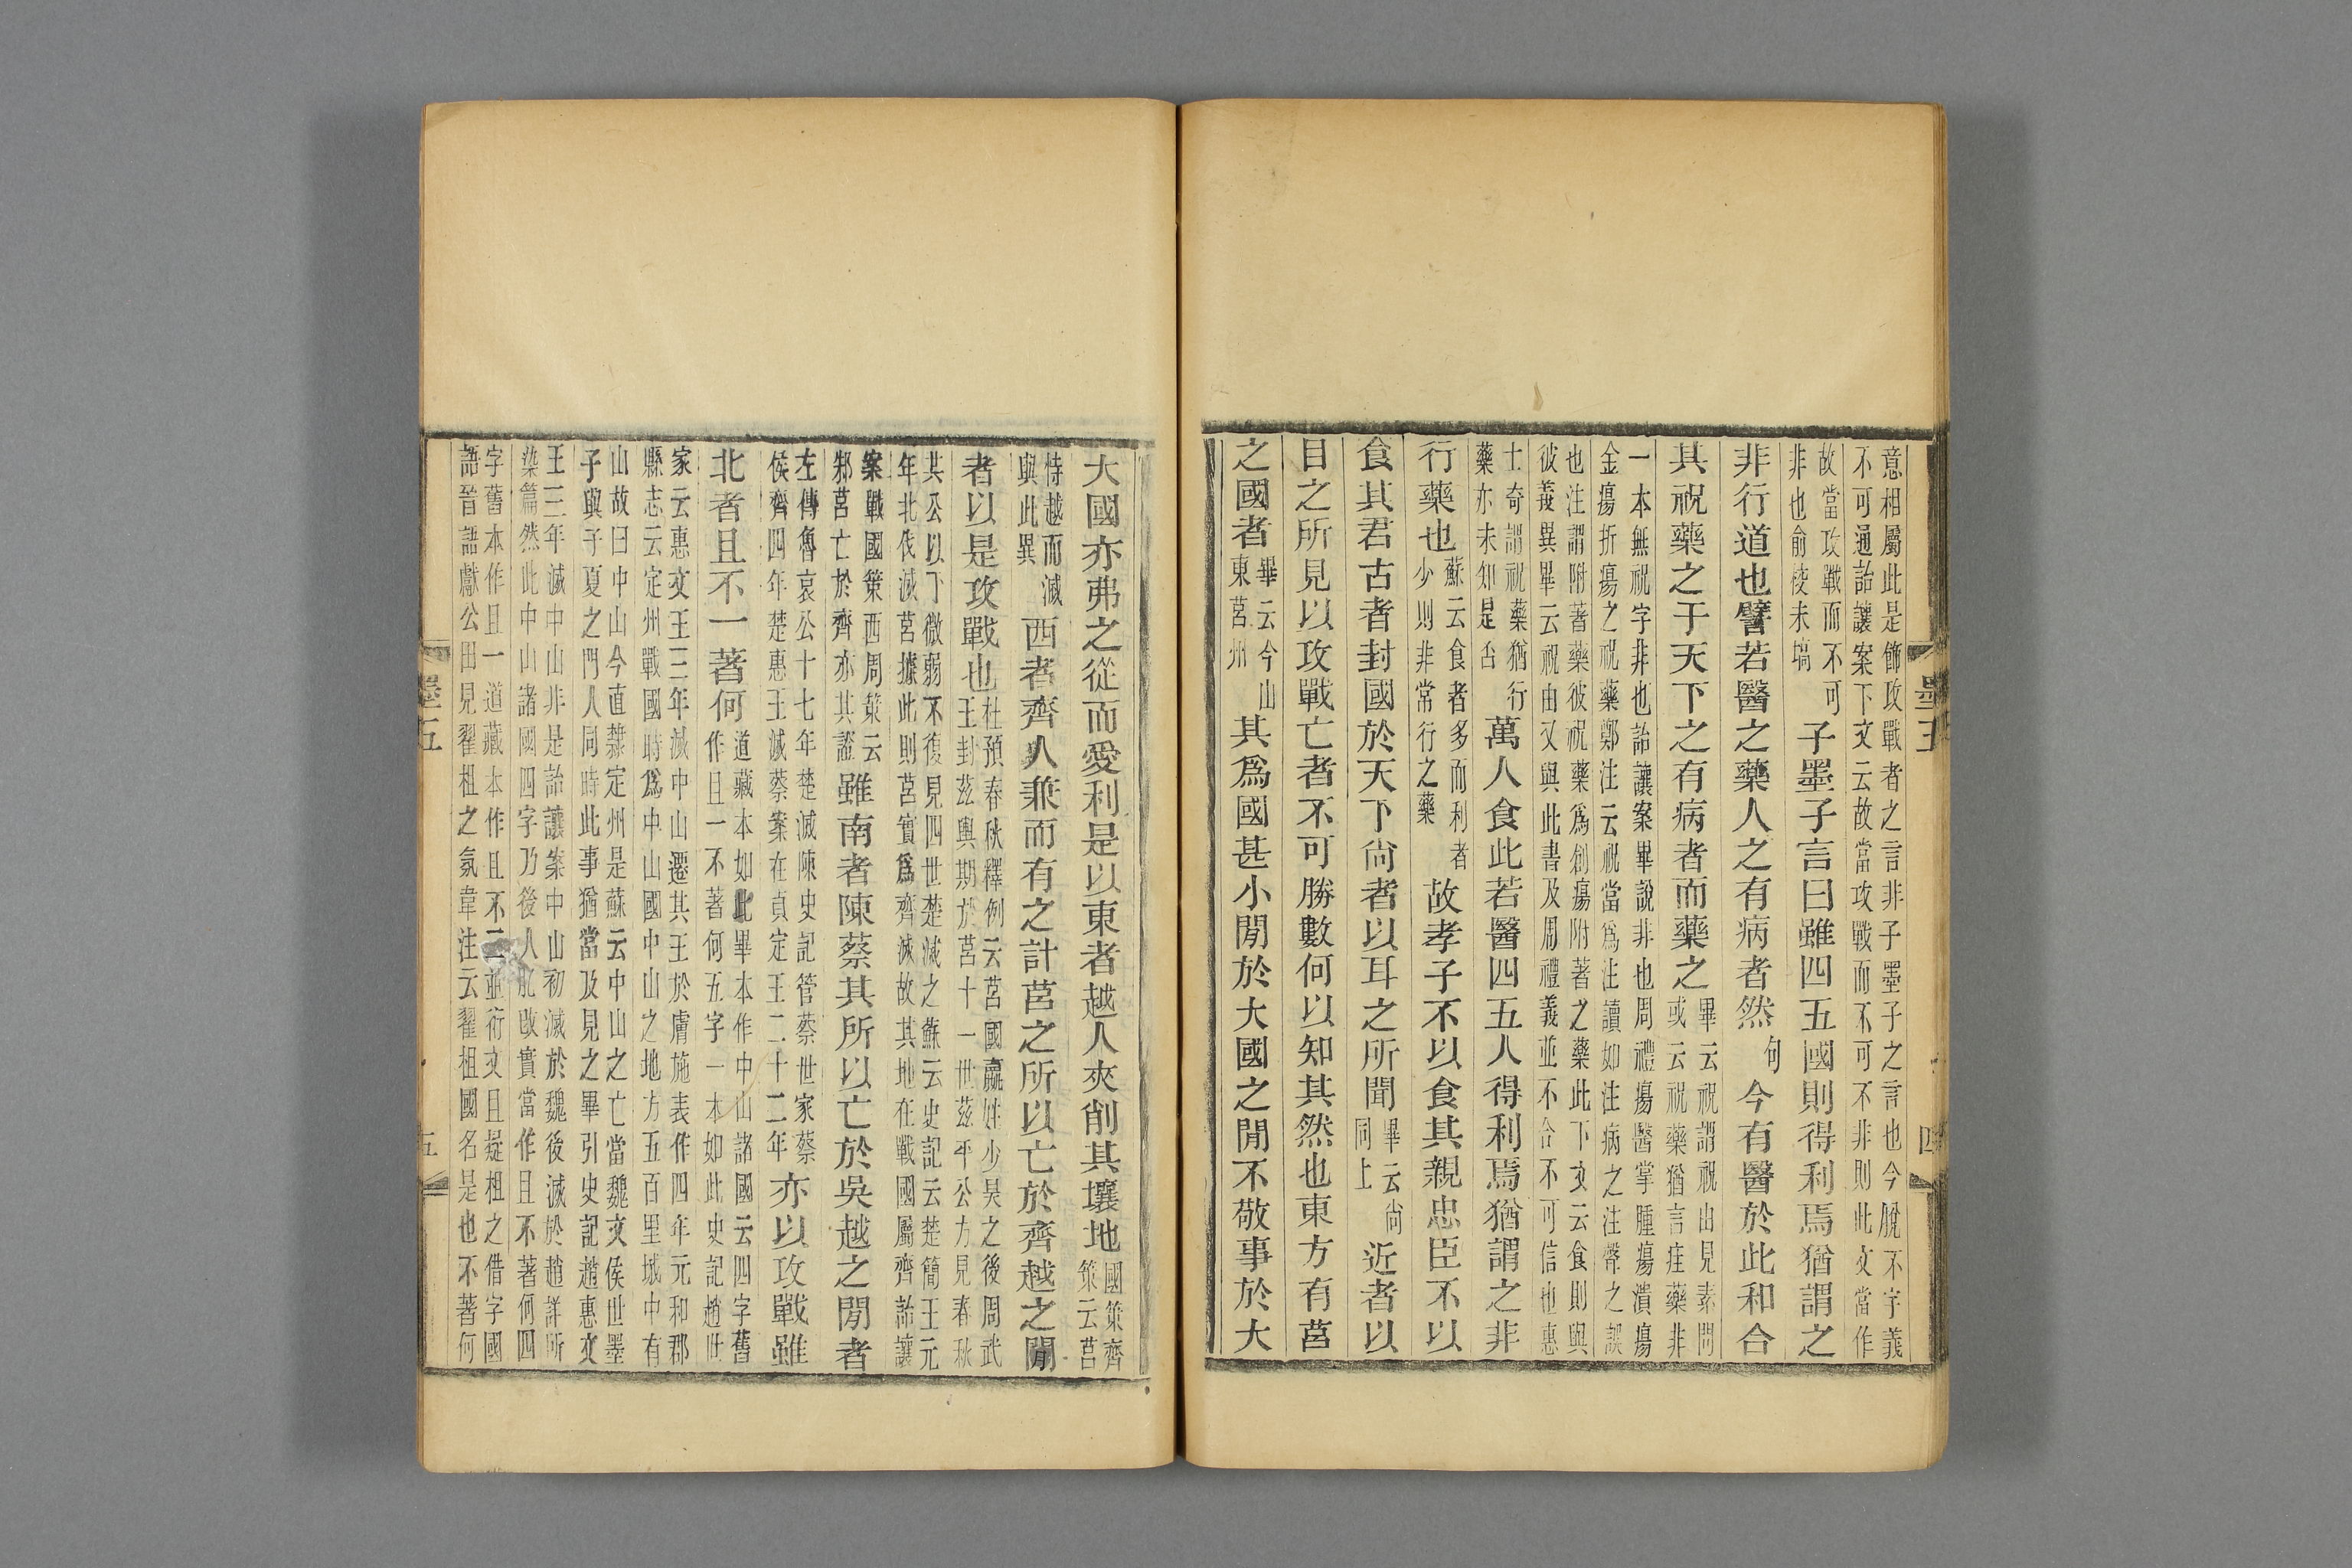 墨五
四
意相屬此是飾攻戰者之言非子墨子之言也今脫不字義
不可通詒讓案下文云故當攻戰而不可不非則此文當作
故當攻戰而不可
非也俞校未塙
子墨子言曰雖四五國則得利焉猶謂之
非行道也譬若醫之藥人之有病者然句今有醫於此和合
其祝藥之于天下之有病者而藥之
畢云祝謂祝由見素問
或云祝藥猶言疰藥非
一本無祝字非也詒讓案畢說非也周禮瘍醫掌腫瘍潰瘍
金瘍折瘍之祝藥鄭注云祝當爲注讀如注病之注聲之誤
也注謂附著藥彼祝藥爲創瘍附著之藥此下文云食則與
彼義異畢云祝由又與此書及周禮義並不合不可信也惠
士奇謂祝藥猶行
藥亦未知是否
萬人食此若醫四五人得利焉猶謂之非
行藥也
蘇云食者多而利者
少則非常行之藥
故孝子不以食其親忠臣不以
食其君古者封國於天下尚者以耳之所聞
畢云尚
同上
近者以
目之所見以攻戰亡者不可勝數何以知其然也東方有莒
之國者
畢云今山
東莒州
其爲國甚小閒於大國之閒不敬事於大
大國亦弗之從而愛利是以東者越人夾削其壤地
國策齊
策云莒
恃越而滅
與此異
西者齊人兼而有之計莒之所以亡於齊越之閒
者以是攻戰也
杜預春秋釋例云莒國嬴姓少昊之後周武
王封茲輿期於莒十一世茲平公方見春秋
共公以下微弱不復見四世楚滅之蘇云史記云楚簡王元
年北伐滅莒據此則莒實爲齊滅故其地在戰國屬齊詒讓
案戰國策西周策云
邾莒亡於齊亦其證
雖南者陳蔡其所以亡於吳越之閒者
左傳魯哀公十七年楚滅陳史記管蔡世家蔡
侯齊四年楚惠王滅蔡案在貞定王二十二年
亦以攻戰雖
北者且不一著何
道藏本如此畢本作中山諸國云四字舊
作且一不著何五字一本如此史記趙世
家云惠文王三年滅中山遷其王於膚施表作四年元和郡
縣志云定州戰國時爲中山國中山之地方五百里城中有
山故曰中山今直隸定州是蘇云中山之亡當魏文侯世墨
子與子夏之門人同時此事猶當及見之畢引史記趙惠文
王三年滅中山非是詒讓案中山初滅於魏後滅於趙詳所
染篇然此中山諸國四字乃後人肊改實當作且不著何四
字舊本作且一道藏本作且不一並衍文且疑柤之借字國
語晉語獻公田見翟柤之氛韋注云翟柤國名是也不著何
墨五
五